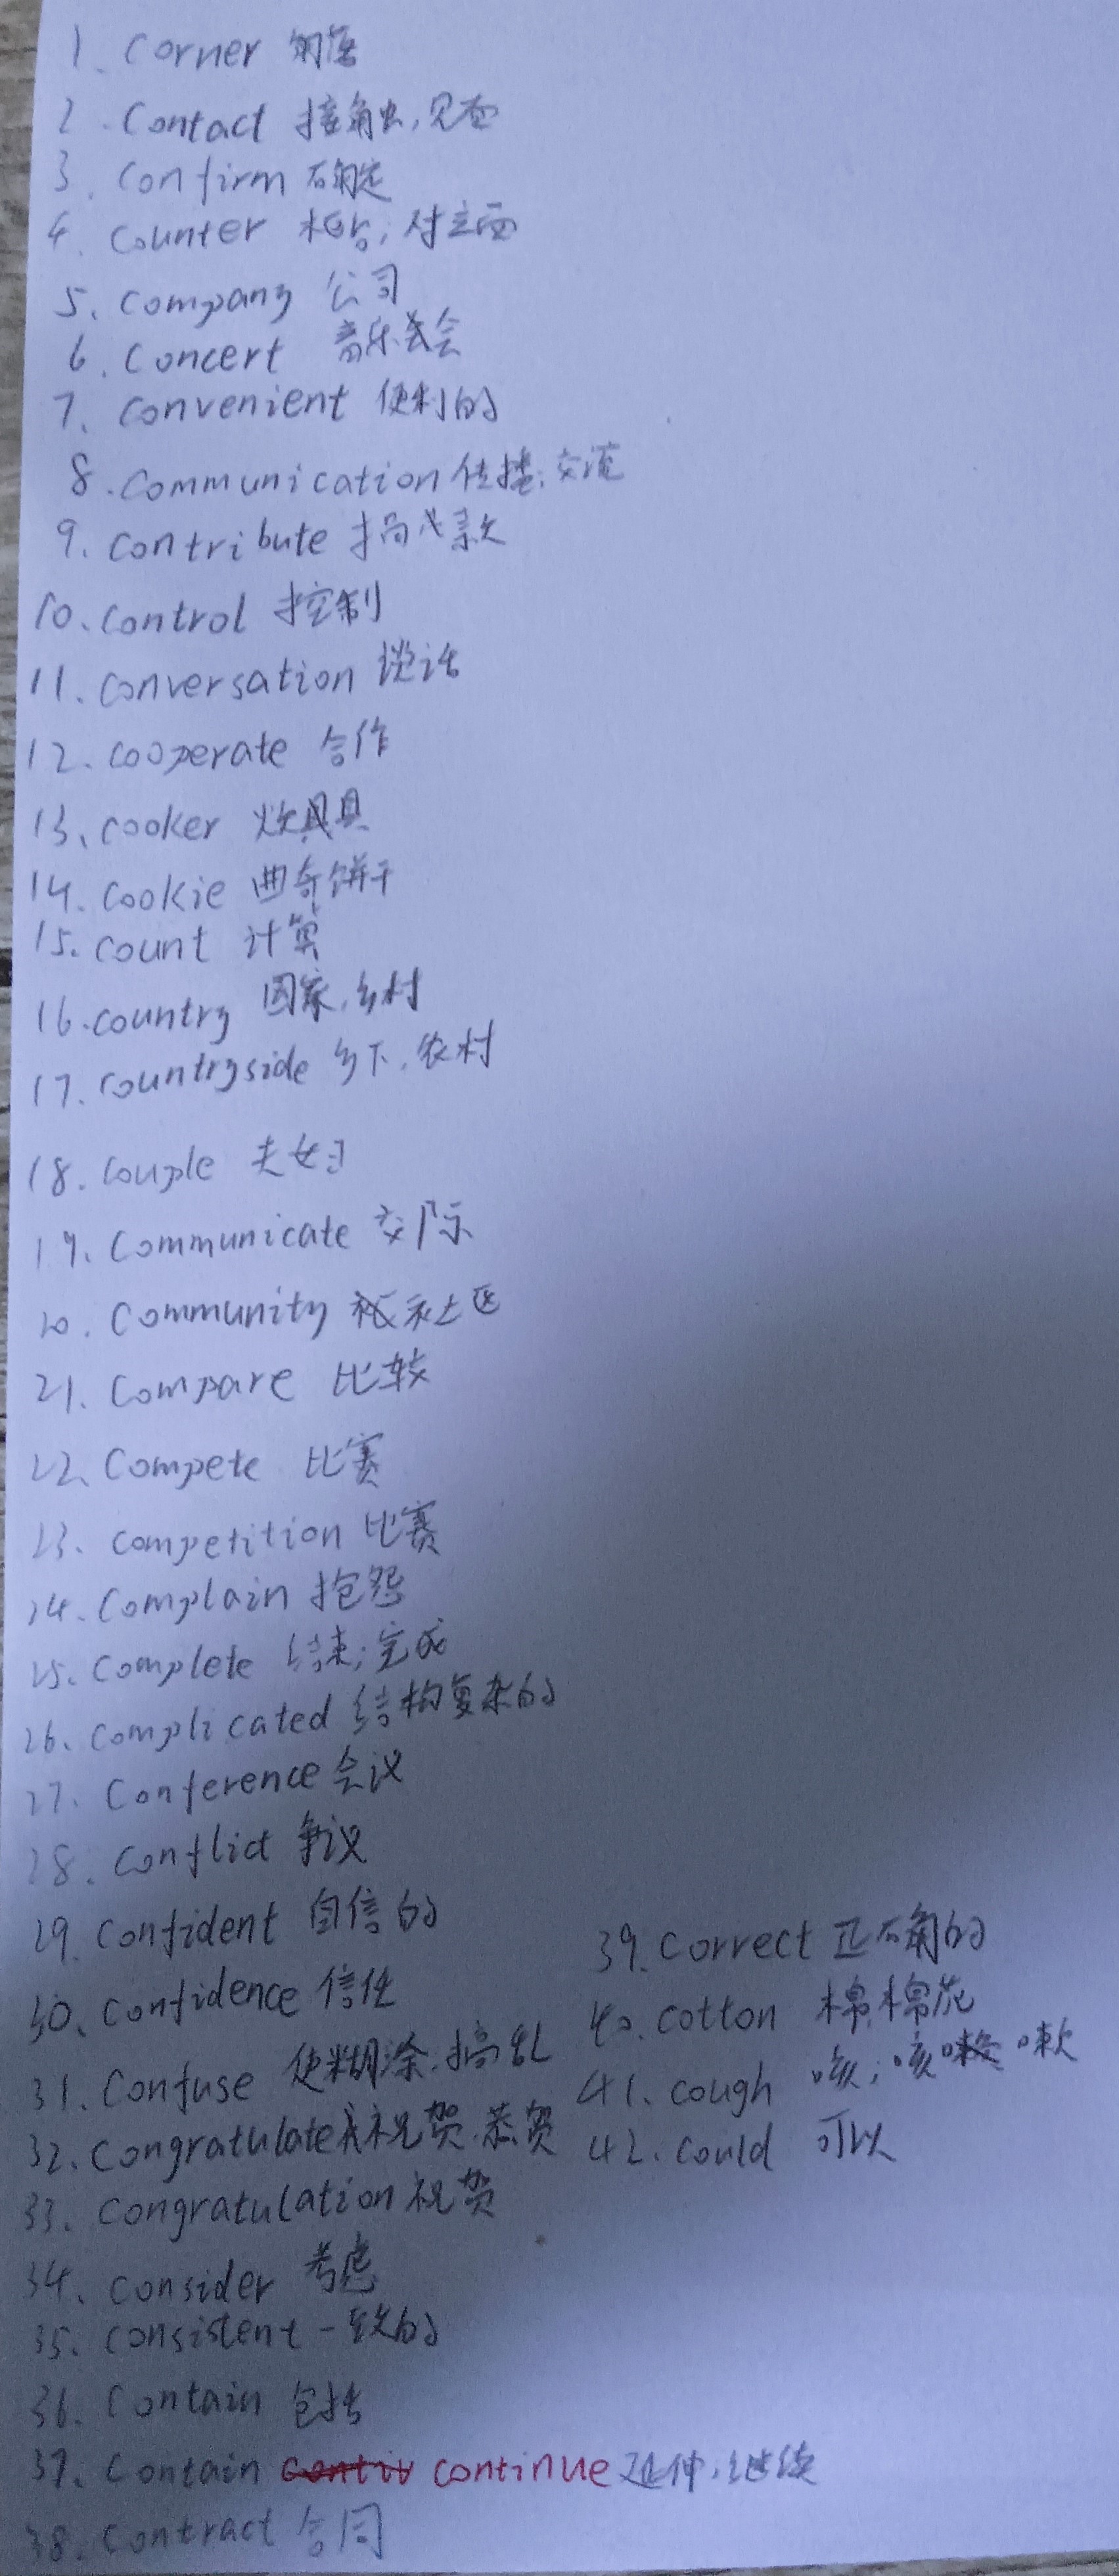 1. Corner 角落
2. Contact 接触,见面
3. Confirm 确定
4. Counter 柜台,对立面
5. Company 公司
6. Concert 音乐会
7. Convenient 便利的
8. Communication 传播,交流
9. Contribute 捐款
10. Control 控制
11. Conversation 谈话
12. Cooperate 合作
13. Cooker 炊具
14. Cookie 曲奇饼干
15. Count 计算
16. Country 国家,乡村
17. Countryside 乡下,农村
18. Couple 夫妇
19. Communicate 交际
20. Community 社区
21. Compare 比较
22. Compete 比赛
23. Competition 比赛
24. Complain 抱怨
25. Complete 结束;完成
26. Complicated 结构复杂的
27. Conference 会议
28. Conflict 争议
29. Confident 自信的
30. Confidence 信任
31. Confuse 使糊涂,搞乱
32. Congratulate 祝贺,恭贺
33. Congratulation 祝贺
34. Consider 考虑
35. Consistent 一致的
36. Contain 包括
37. Contain continue 延伸,继续
38. Contract 合同
39. Correct 正确的
40. Cotton 棉,棉花
41. Cough 咳;咳嗽
42. Could 可以